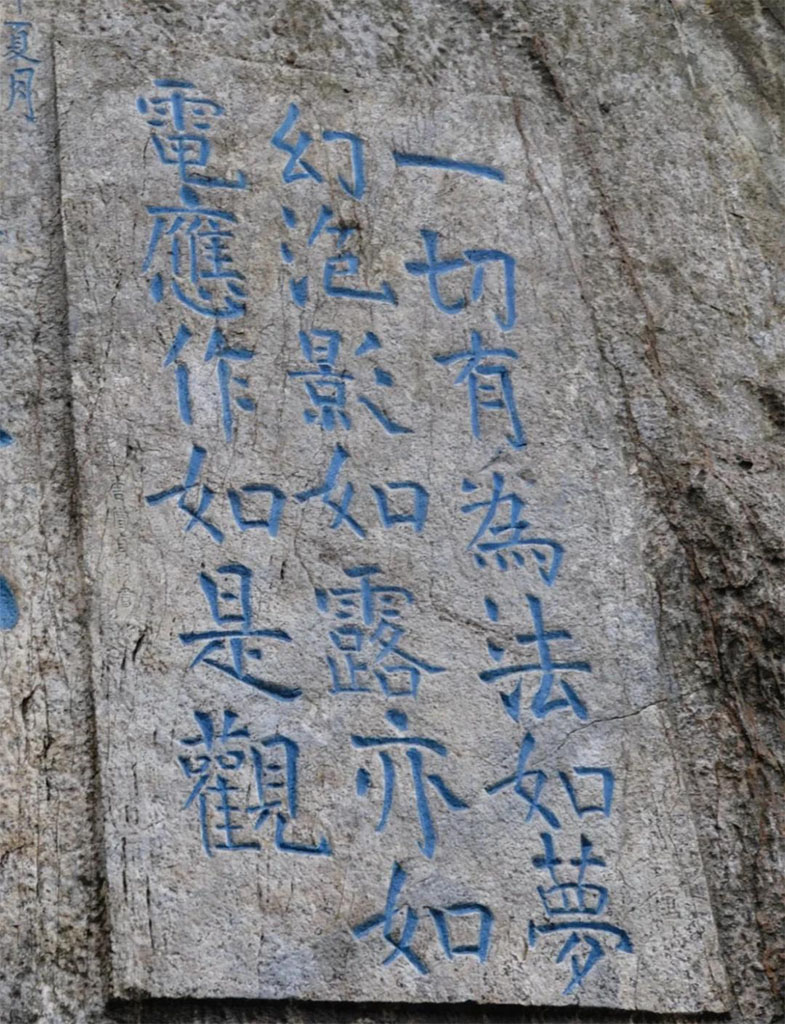 一切有為法如夢
幻泡影如露亦如
電應作如是觀
夏月